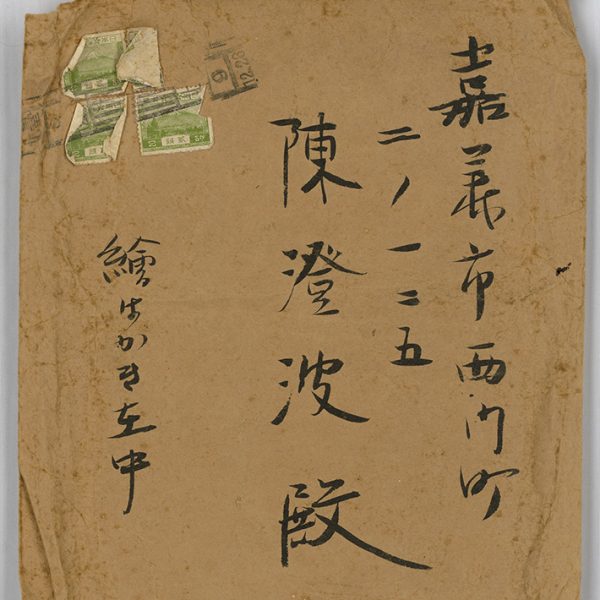 嘉義市西門町
二ノ一二五
陳澄波殿
繪はがき在中
12.28
9